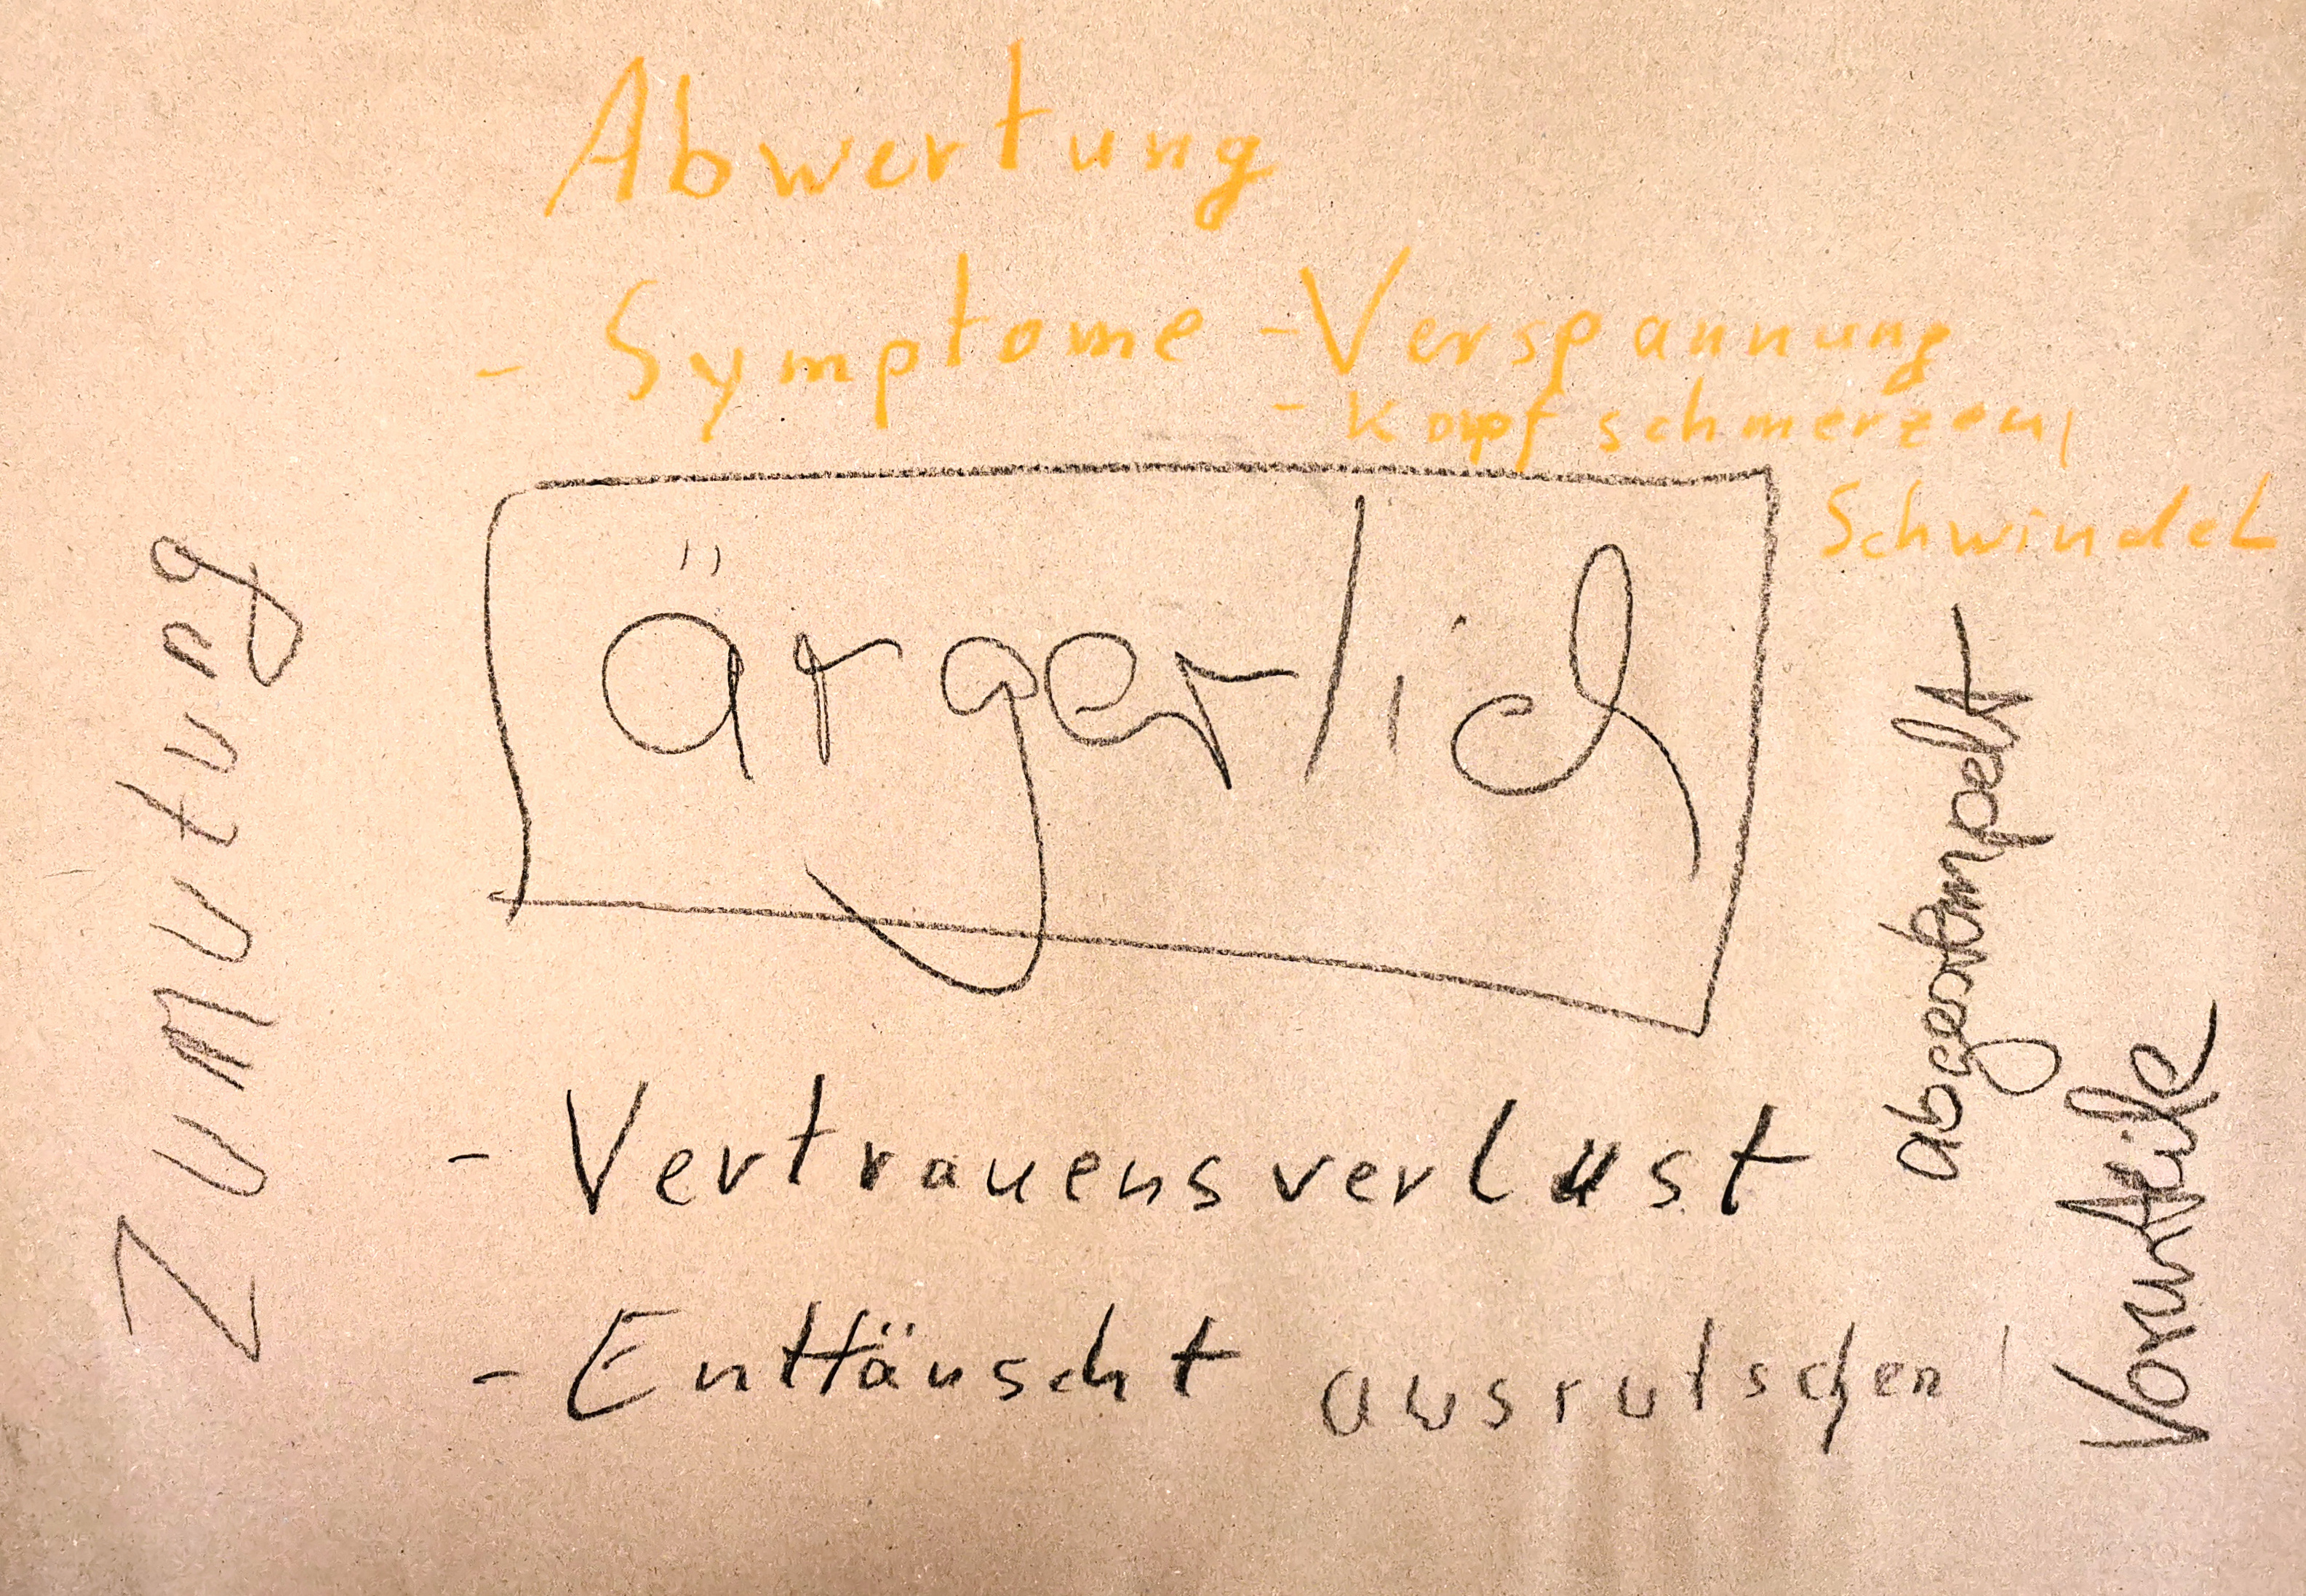 Abwertung
- Symptome - Verspannung
- Kopfschmerzen,
Schwindel
ärgerlich
Zumutung
abgestempelt
Vorurteile
- Vertrauensverlust
- Enttäuscht ausrutschen